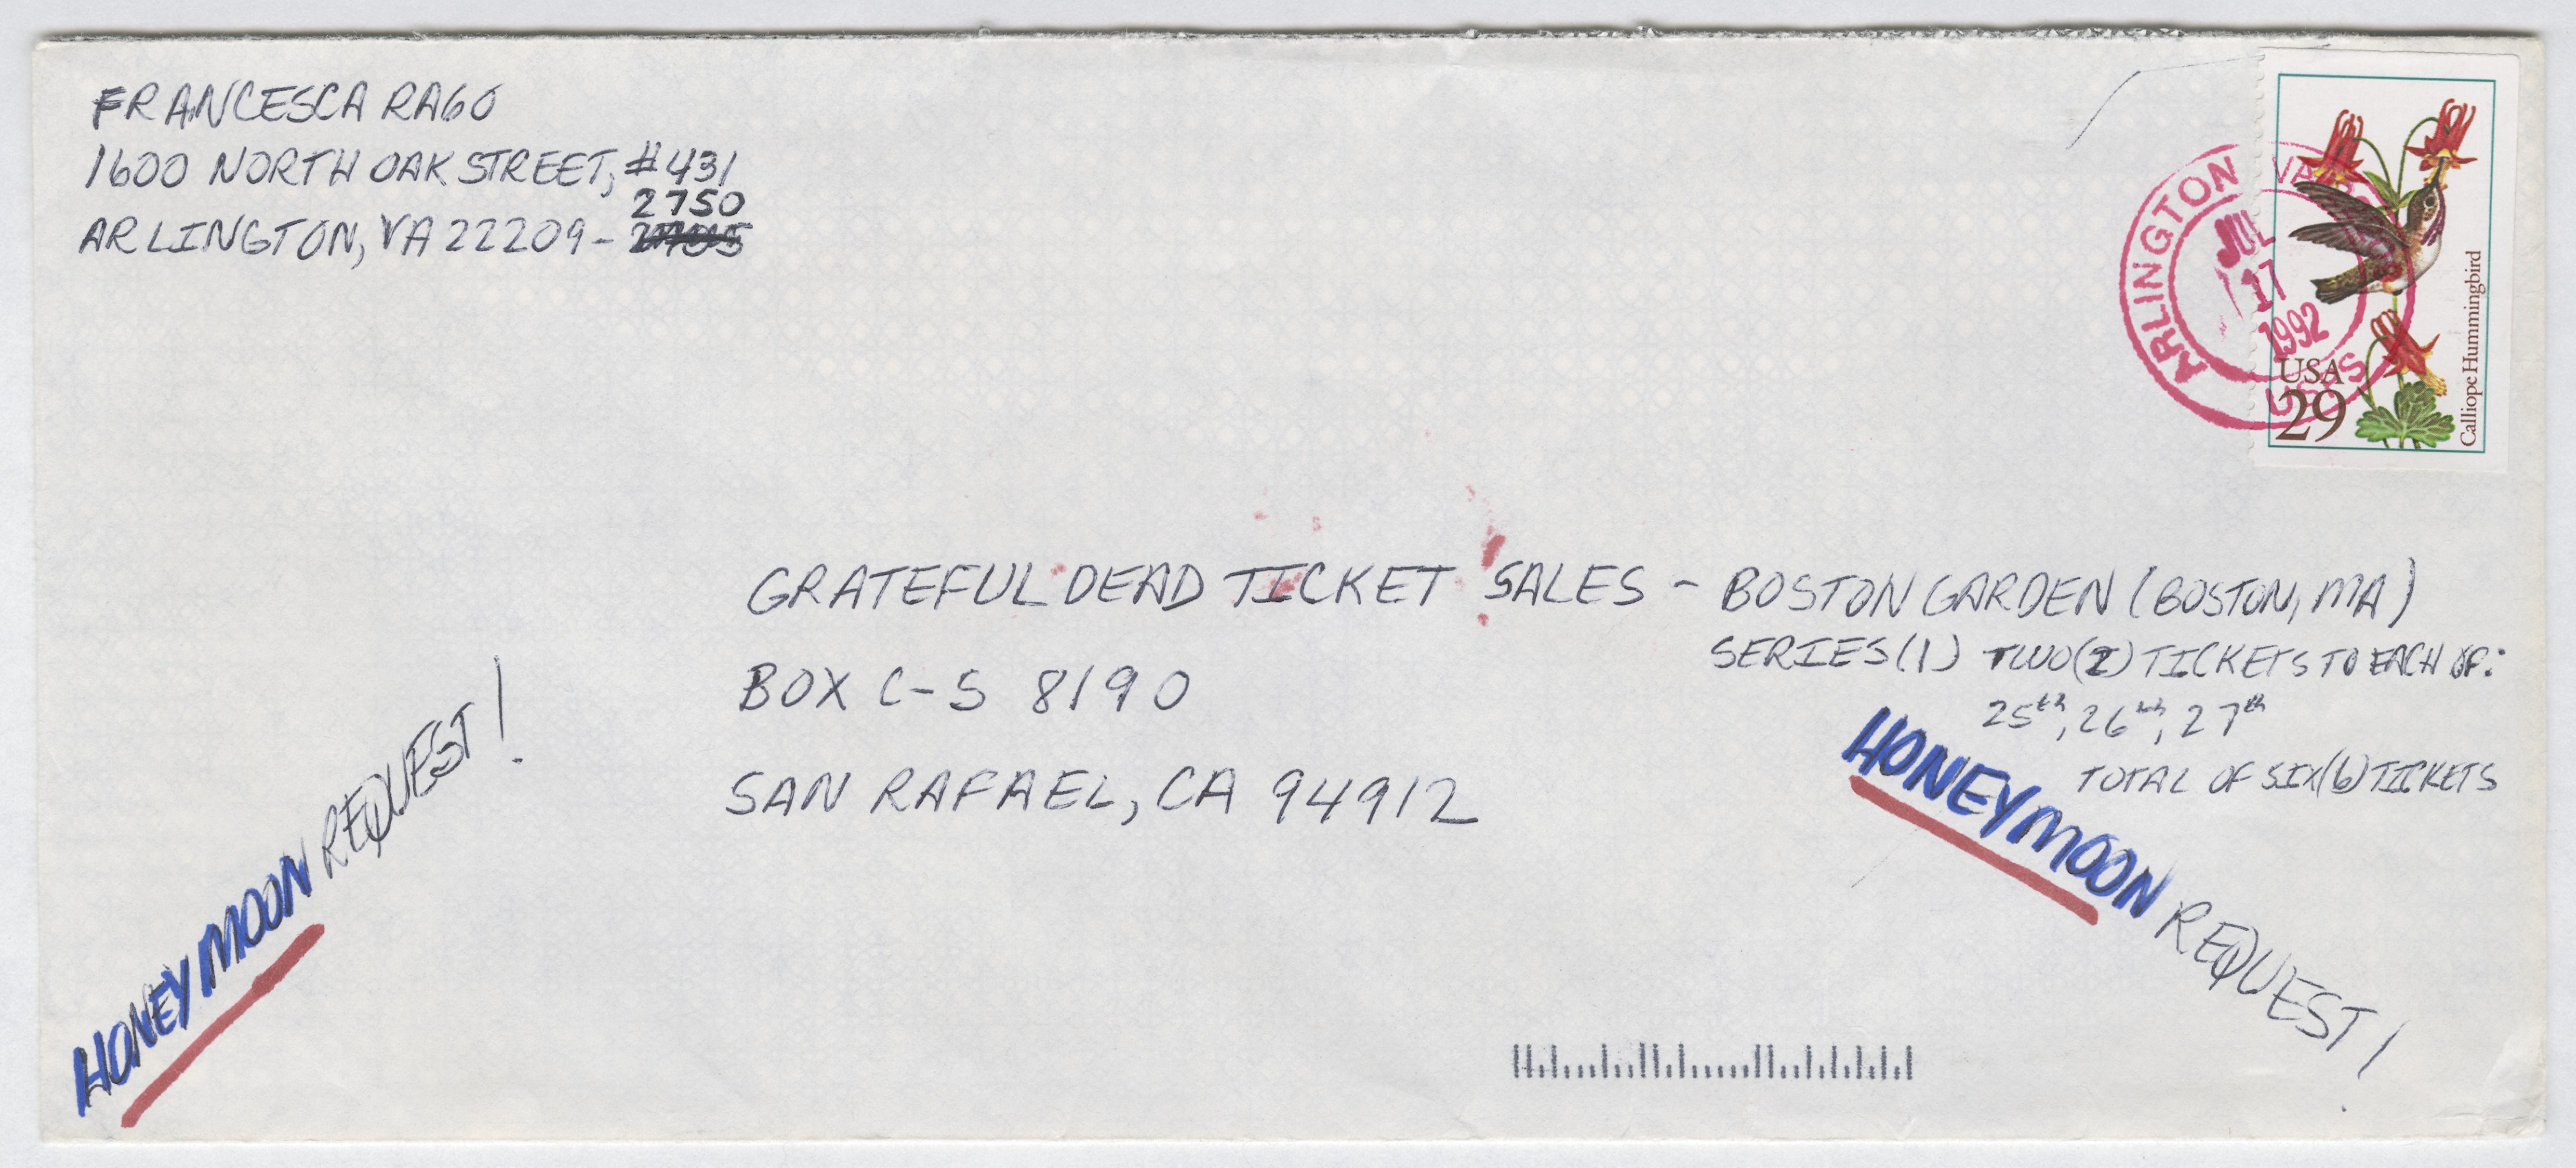 FRANCESCA RAGO
1600 NORTH OAK STREET, #431
2750
ARLINGTON, VA 22209-
ARLINGTON VA
JUL
17
1992
USPS
USA
29
Calliope Hummingbird
GRATEFUL DEAD TICKET SALES - BOSTON GARDEN (BOSTON, MA)
SERIES (1) TWO (2) TICKETS TO EACH OF:
BOX C-S 8190
25th, 26th, 27th
TOTAL OF SIX (6) TICKETS
SAN RAFAEL, CA 94912
HONEYMOON REQUEST!
HONEYMOON REQUEST!